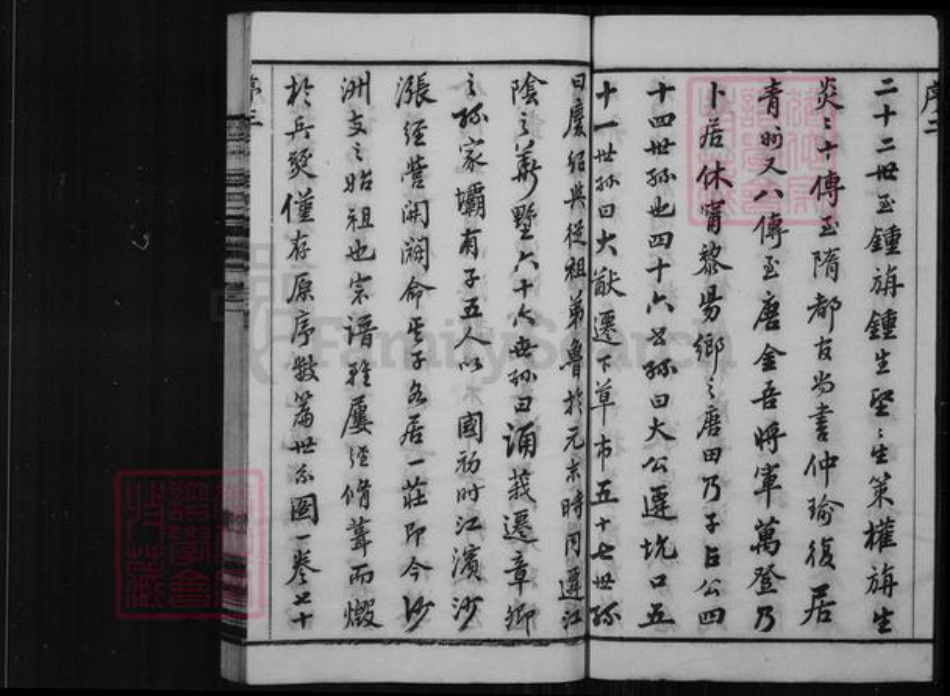 序二
二十二世至鍾旃鍾生堅堅生策權旃生
炎炎十傳至隋都官尚書仲瑜復居
青州又八傳至唐金吾將軍萬登乃
卜居休甯黎陽鄉之唐田乃子臣公四
十四世孫也四十六世孫曰大公遷坑口五
十一世孫曰大猷遷下草市五十七世孫
曰慶紹與從祖弟魯於元末時同遷江
陰之華墅六十六世孫曰誦莪遷章卿
之孫家壩有子五人以國初時江濱沙
漲經營開闢命其子各居一莊即今沙
洲支之始祖也宗譜雖屢經脩葺而燬
於兵燹僅存原序數篇世系圖一卷七十
序三
FamilySearch